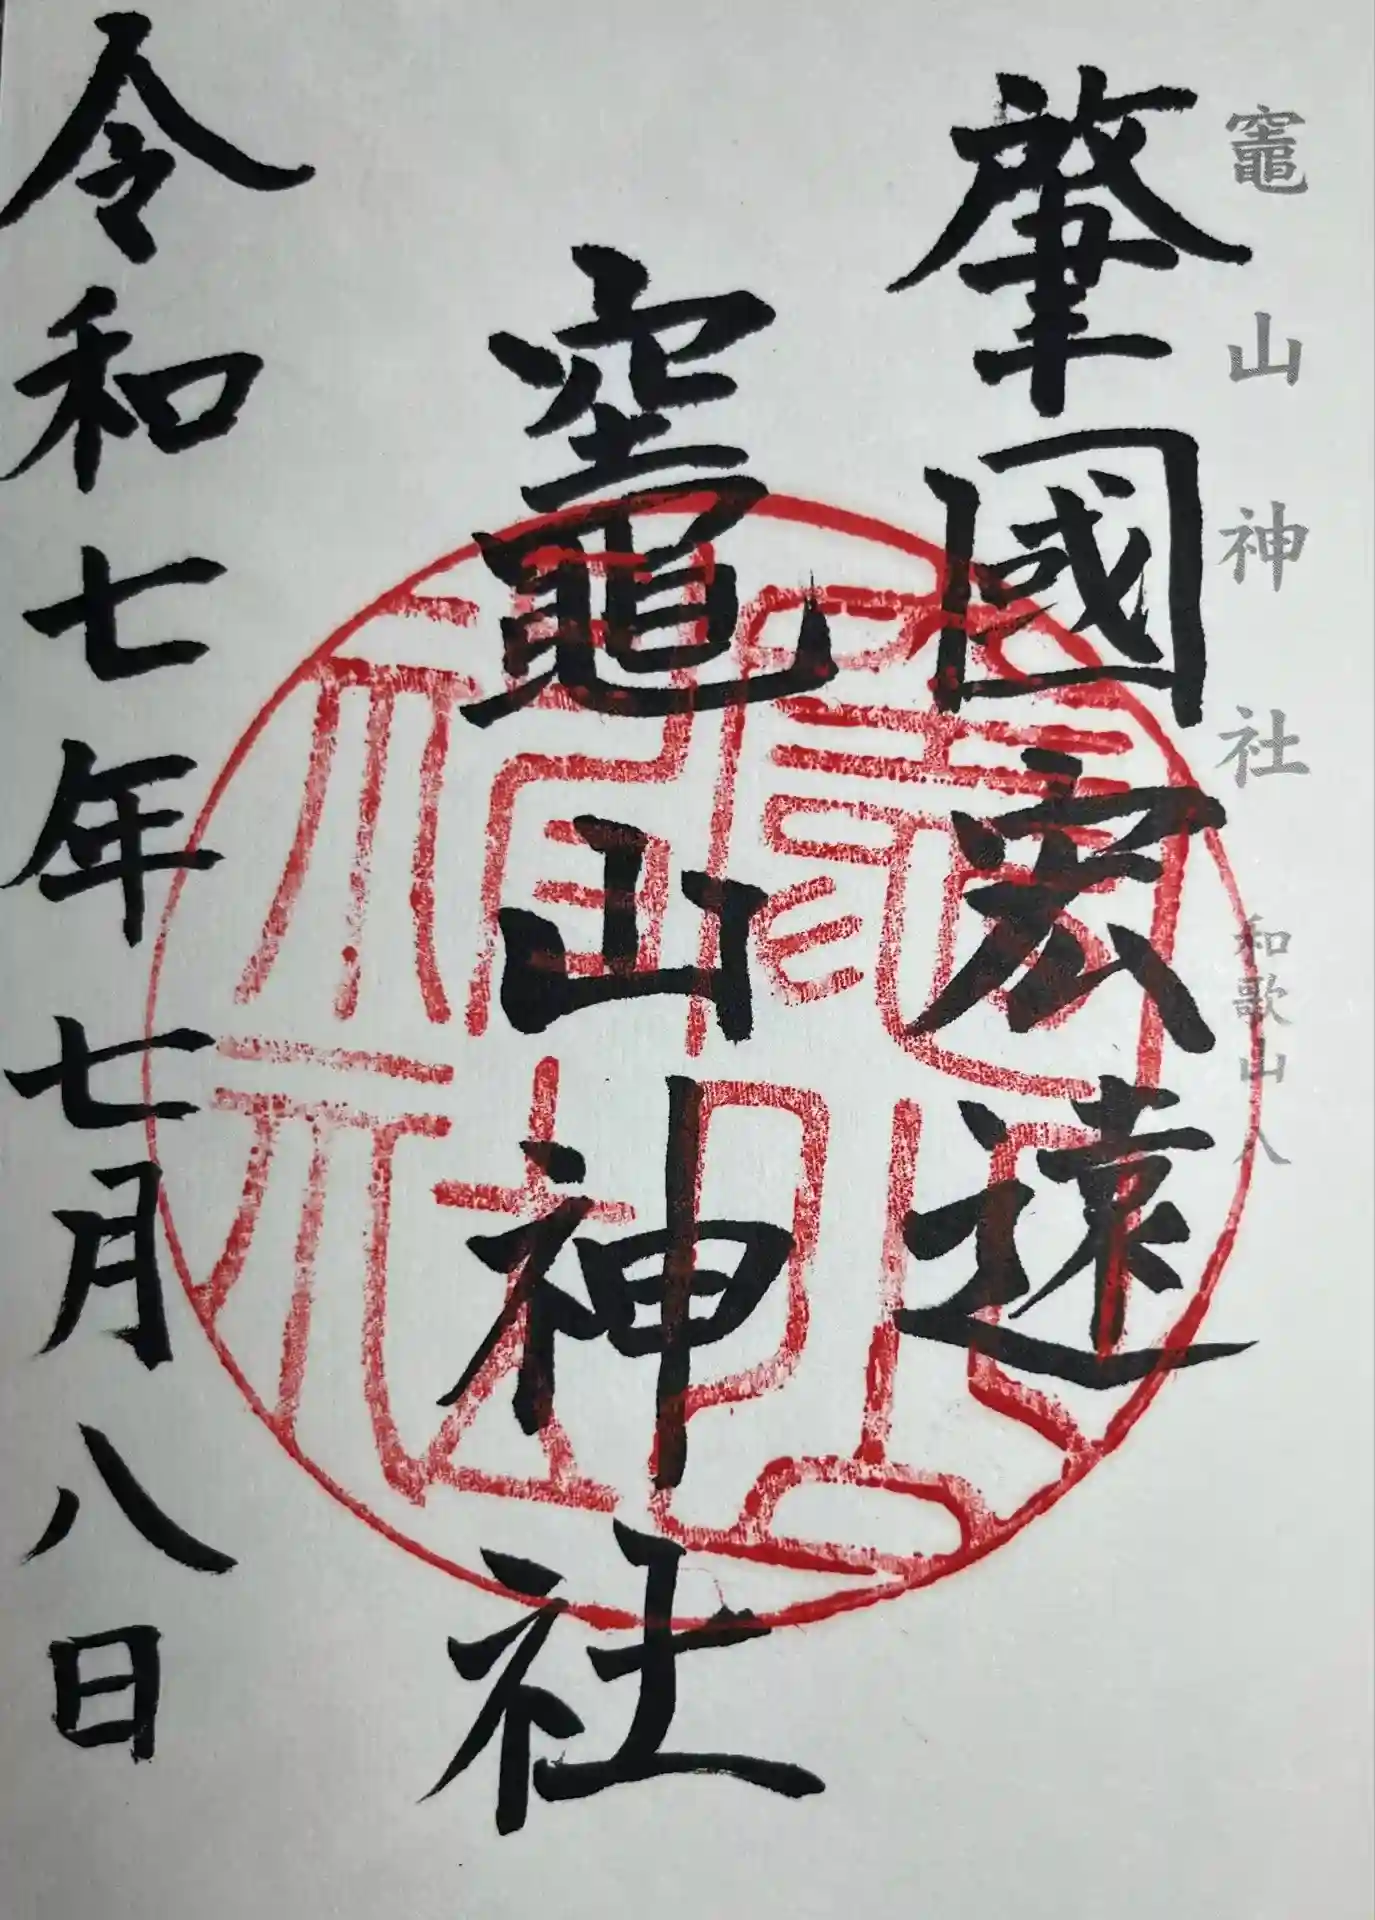 竈山神社 和歌山 人
肇國宏遠
竈山神社
令和七年七月八日